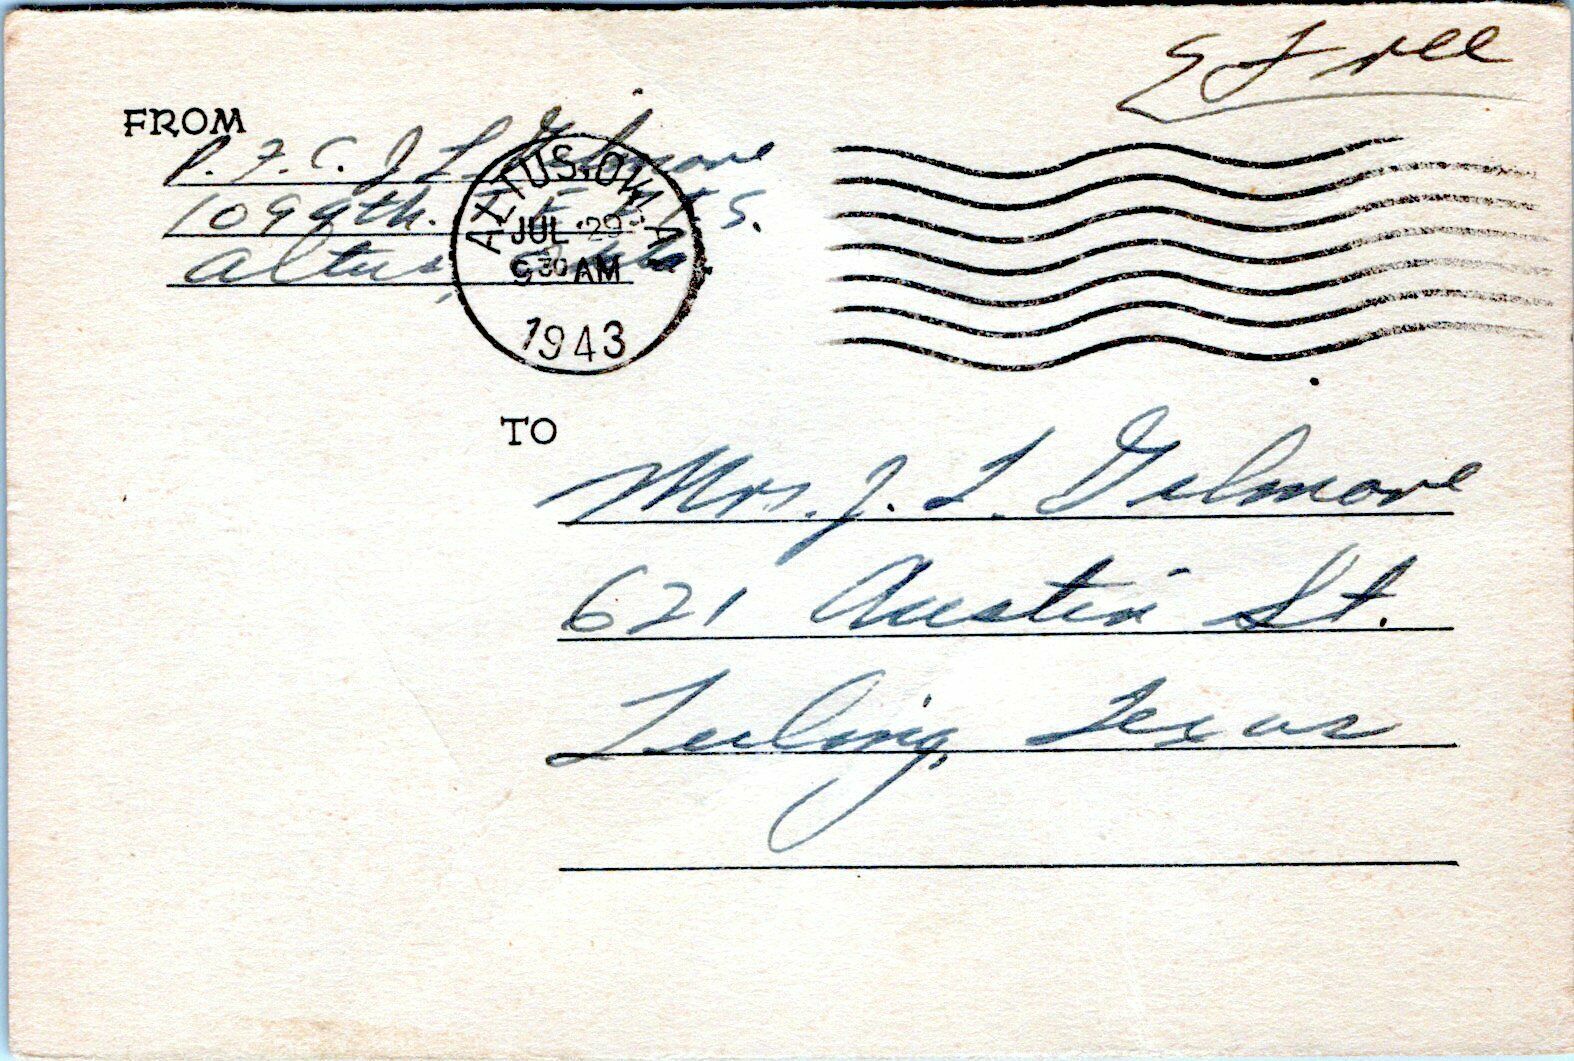 Free
FROM
P.F.C. J. L. Gilmore
1099th.
Altus, Okla
ALTUS, OKLA
JUL 29
9 30 AM
1943
TO
Mrs. J. L. Gilmore
621 Austin St.
Luling, Texas